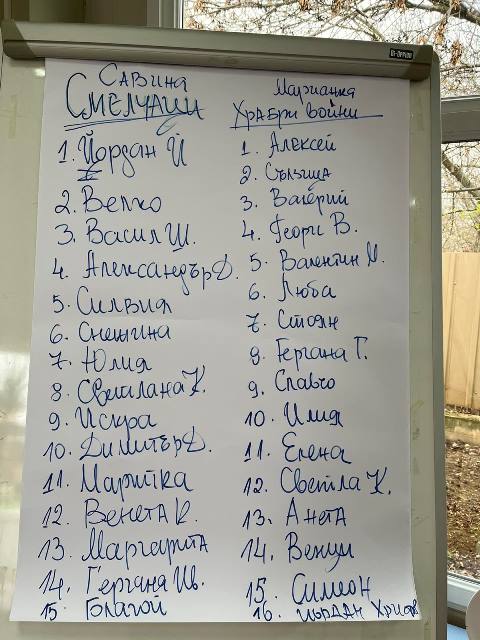 BI-OFFICE
САВИНА
СМЕЛЧАЦИ
1. Йордан Й
2. Велко
3. Васил Ш.
4. Александър Д.
5. Силвия
6. Снежина
7. Юлия
8. Светлана К.
9. Искра
10. Димитър Д.
11. Марийка
12. Венета К.
13. Маргарита
14. Гергана Ив.
15. Благой
Марианка
Храбри войни
1. Алексей
2. Сълзица
3. Валерий
4. Георги В.
5. Валентин М.
6. Люба
7. Стоян
8. Гергана Г.
9. Славчо
10. Илия
11. Елена
12. Светла К.
13. Анета
14. Венци
15. Симеон
16. Йордан Христов